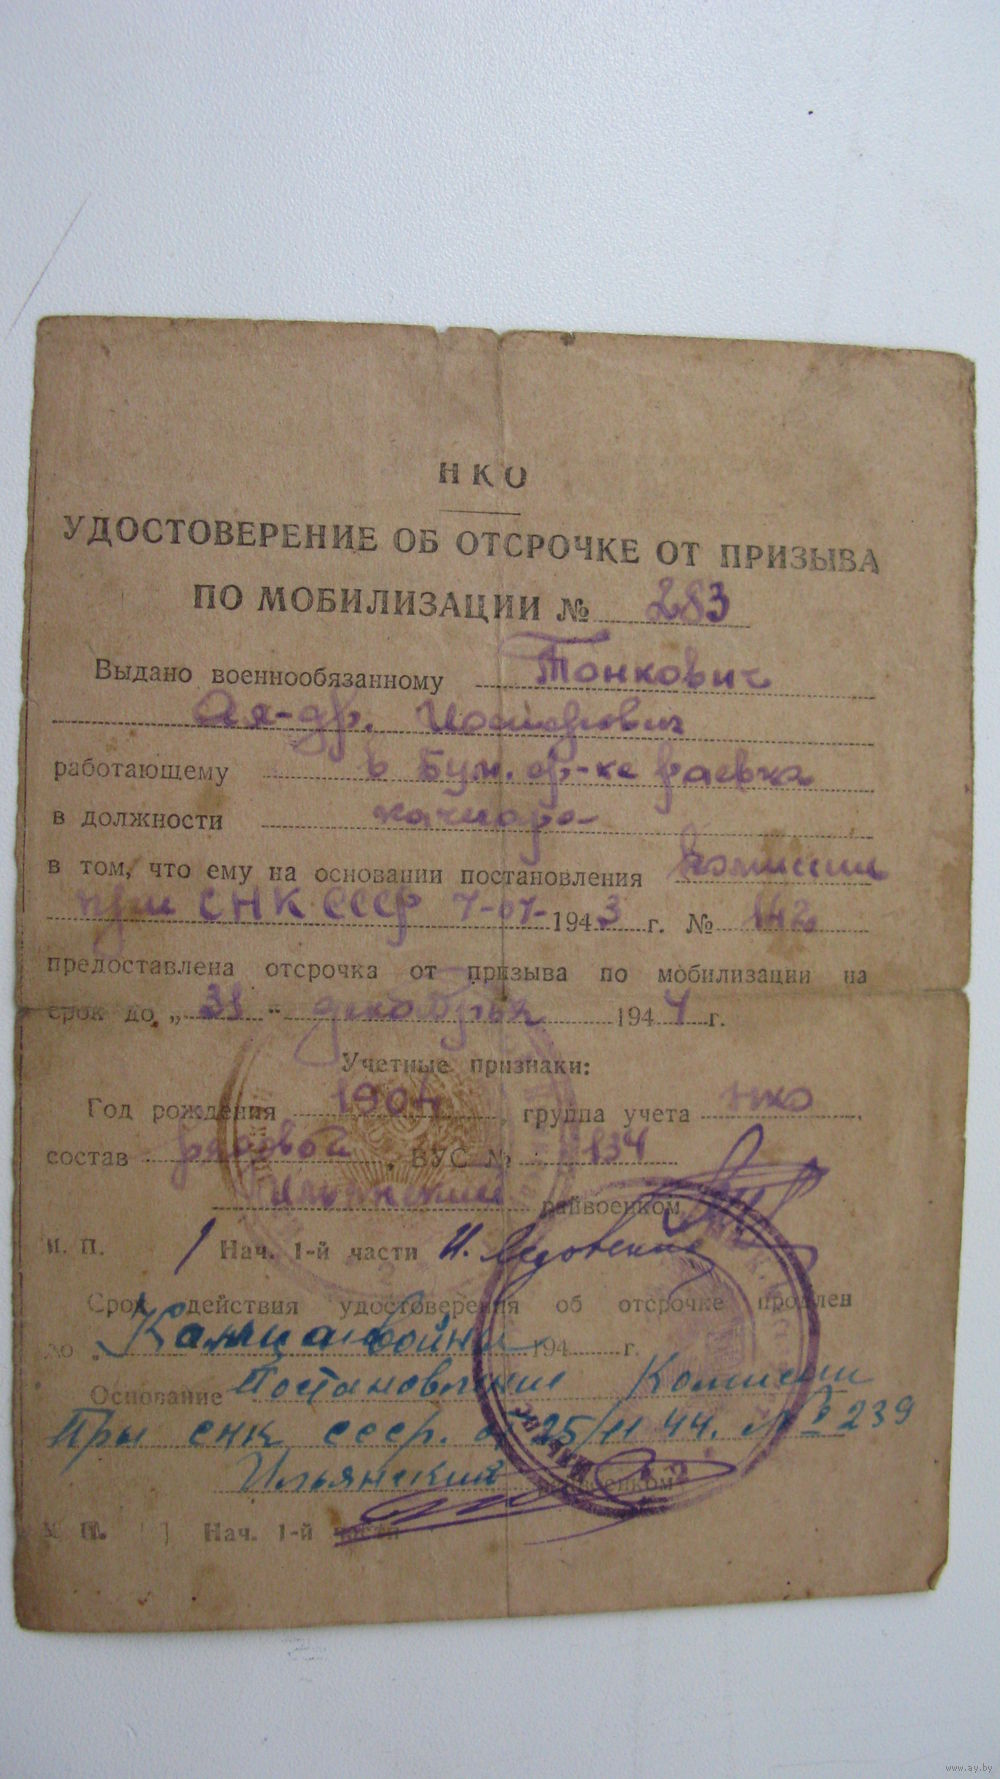 НКО
УДОСТОВЕРЕНИЕ ОБ ОТСРОЧКЕ ОТ ПРИЗЫВА
ПО МОБИЛИЗАЦИИ № 283
Выдано военнообязанному Тонкович
Ал-др. Иосифович
работающему в Бум. ф-ке Раевка
в должности
в том, что ему на основании постановления Комиссии
при СНК СССР 7-07- 1943 г. № 142
предоставлена отсрочка от призыва по мобилизации на
срок до „31“ декабря 1944 г.
Учетные признаки:
Год рождения 1904 группа учета нко
состав рядовой, ВУС № 134
Ильянский райвоенком
М. П. Нач. 1-й части
Срок действия удостоверения об отсрочке продлен
до „ Конца войны 194 г.
Основание Постановление Комиссии
При СНК СССР. от 25/11 44. № 239
Ильянский райвоенком
М. П. Нач. 1-й части
www.ay.by